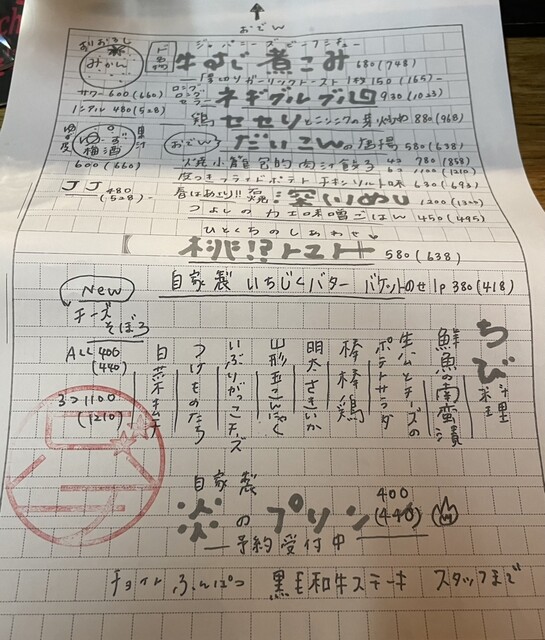 おでん
おりおろし みかん
サワー600(660)
ノンアル 480(528)
ゆず 梅酒
600(660)
JJ 480(528)
ジャパニーズビーフシチュー
牛すじ煮こみ 680(748)
厚切りガーリックトースト1枚150(165)
ネギブルブル 930(1023)
鶏せせりとニンニクの芽 880(968)
おでん だいこんの 580(638)
焼小籠包的肉汁餃子 4コ 780(858)
6コ 1100(1210)
皮つきフライドポテト チキンソルト味 630(693)
春はあさり!! 深いめし 1200(1320)
つよしのカニ味噌ごはん 450(495)
ひとくちのしあわせ
桃!?トマト 580(638)
自家製 いちじくバター バケットのせ1p 380(418)
NEW
チーズそぼろ
ALL 400
(440)
3つ1100
(1210)
ちび料理
鮮魚の南蛮漬
生ハムとチーズのポテトサラダ
棒棒鶏
明太さきいか
山形玉こんにゃく
いぶりがっこチーズ
つけものたち
白菜キムチ
自家製
炎のプリン 400
(440)
予約受付中
チョイトふんぱつ 黒毛和牛ステーキ スタッフまで